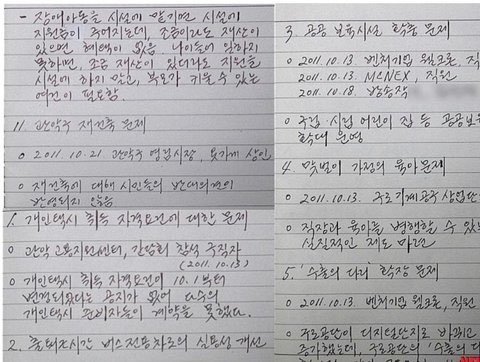 - 장애아동을 시설에 맡기면 시설에
지원금이 주어지는데, 조금이라도 재산이
있으면 혜택이 없음. 나이들어 일하지
못하면, 조금 재산이 있더라도 지원을
시설에 하지 말고, 부모가 키울 수 있는
여건이 필요함
11. 관악구 재건축 문제
o 2011.10.21 관악구 영걸시장, 옷가게 상인
o 재건축에 대해 시민들의 반대의견이
반영되지 않음
1. 개인택시 취득 자격요건에 대한 문제
o 관악 고용지원센터, 간담회 참석 구직자
(2011.10.13)
o 개인택시 취득 자격요건이 10.1부터
변경되었다는 공지가 없어 다수의
개인택시 준비자들이 계약을 못했다.
2. 출퇴근시간 버스전용차로의 실용성 개선
3. 공공 보육시설 확충 문제
o 2011.10.13 벤처기업 윌크론, 직
o 2011.10.13. MCNEX, 직원
o 2011.10.18 방송작
o 국립·시립 어린이 집 등 공공보육
확대 운영
4. 맞벌이 가정의 육아문제
o 2011.10.13. 구로기계공구 상업단
o 직장과 육아를 병행할 수 있는
실질적인 제도 마련
5. '수출의 다리' 확장 문제
o 2011.10.13 벤처기업 윌크론, 직원
o 구로공단이 디지털단지로 바뀌고
증가했는데, 구로공단의 '수출의 다